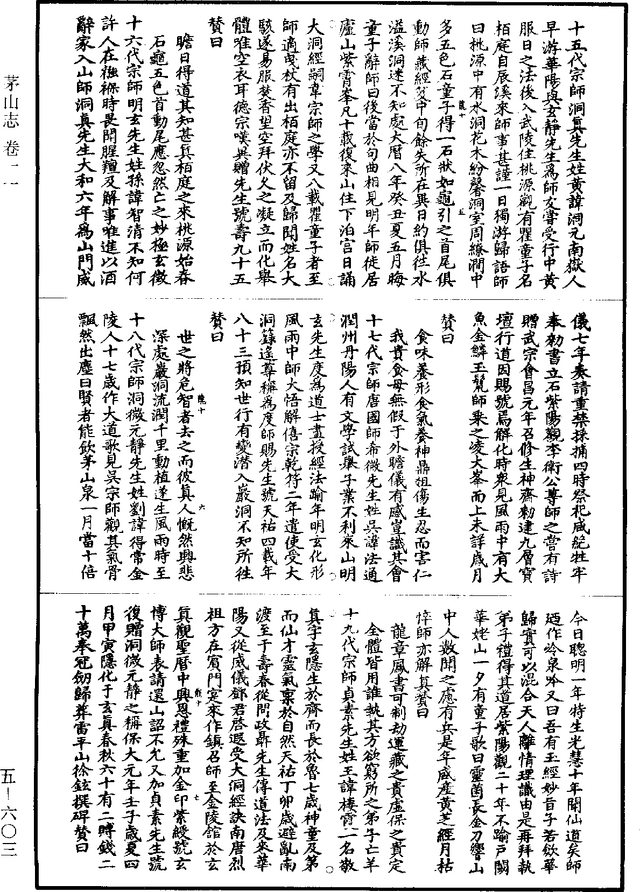 茅山志 卷一一
五—六〇三
十五代宗師洞真先生姓黃諱洞元南嶽人
早游華陽與玄靜先生為師友嘗受行中黃
服日之法後入武陵住桃源觀有瞿童子名
栢庭自辰溪來師事甚謹一日獨游歸語師
曰桃源中有水洞花木紛馨洞室周繚澗中
多五色石童子得一石狀如龜引之首尾俱
動師藏經笈中旬餘失所在異日約俱往水
溢溪洞迷不知處大曆八年癸丑夏五月晦
童子辭師曰後當於句曲相見明年師徒居
廬山紫霄峯凡十載復來山住下泊宮日誦
大洞經嗣韋宗師之學又八載瞿童子者至
師適曳杖有出栢庭亦不留及歸聞姓名大
駭遂易服焚香望空拜伏久之凝立而化舉
體唯空衣耳德宗嘆異贈先生號壽九十五
贊曰
瞻日得道其知甚真栢庭之來桃源始春
石龜五色首動尾應忽然亡之妙極玄徵
十六代宗師明玄先生姓孫諱智清不知何
許人在襁褓時畏聞腥羶及解事唯進以酒
辭家入山師洞真先生大和六年為山門威
儀七年奏請重禁採捕四時祭祀咸絕牲牢
奉勑書立石紫陽觀李衛公尊師之嘗有詩
贈武宗會昌元年召修生神齋勑建九層寶
壇行道因賜號焉解化時衆見風雨中有大
魚金鱗玉鬣師乘之凌大峯而上未詳歲月
贊曰
食味養形食氣養神鼎俎傷生忍而害仁
我貴食母無假于外瞻儀有感豈識其會
十七代宗師唐國師希微先生姓吳諱法通
潤州丹陽人有文學試舉子業不利來山明
玄先生度為道士盡授經法踰年明玄化形
風雨中師大悟解僖宗乾符二年遣使受大
洞籙遙尊稱為度師賜先生號天祐四載年
八十三預知世行有變潛入巖洞不知所往
贊曰
世之將危智者去之而彼真人慨然興悲
深處巖洞流潤千里動植遂生風雨時至
十八代宗師洞微元靜先生姓劉諱得常金
陵人十七歲作大道歌見吳宗師觀其氣骨
飄然出塵曰賢者能飲茅山泉一月當十倍
今日聰明一年特生光慧十年聞仙道矣師
迺作冷泉吟又曰吾有玉經妙旨子若欲華
歸實可以混合天人離情理識由是再拜執
弟子禮得其道居紫陽觀二十年不踰戶閾
華姥山一夕有童子歌曰靈茵長金刀響山
中人數聞之處有兵是年咸産黃芝經月枯
悴師亦解真贊曰
龍章鳳書可制劫運藏之貴虛保之貴定
全體皆用誰執其方欲窮所之第子亡羊
十九代宗師貞素先生姓王諱棲霄一名敬
真字玄隱生於齊而長於魯七歲神童及第
而仙才靈氣稟於自然天祐丁卯歲避亂南
渡至于壽春從問政聶先生傳道法及來華
陽又從威儀鄧君啓遐受大洞經訣南唐烈
祖方在賓門宴來作鎮名師至金陵館於玄
真觀聖曆中興恩禮殊重加金印紫綬號玄
博大師表請還山詔不允又加貞素先生號
復贈洞微元靜之稱保大元年壬子歲夏四
月甲寅隱化于玄真春秋六十有二時錢二
十萬奉冠劒歸葬雷平山徐鉉撰碑贊曰